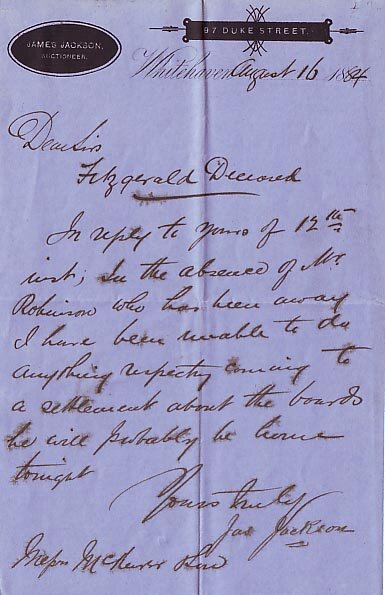 JAMES JACKSON,
AUCTIONEER.
97 DUKE STREET.
Whitehaven August 16 1884
Dear Sirs
Fitzgerald Deceased
In reply to yours of 12th
inst; In the absence of Mr
Robinson who has been away
I have been unable to do
anything respectg coming to
a settlement about the boards
he will probably be home
tonight
Yours truly
Jas Jackson
Messrs